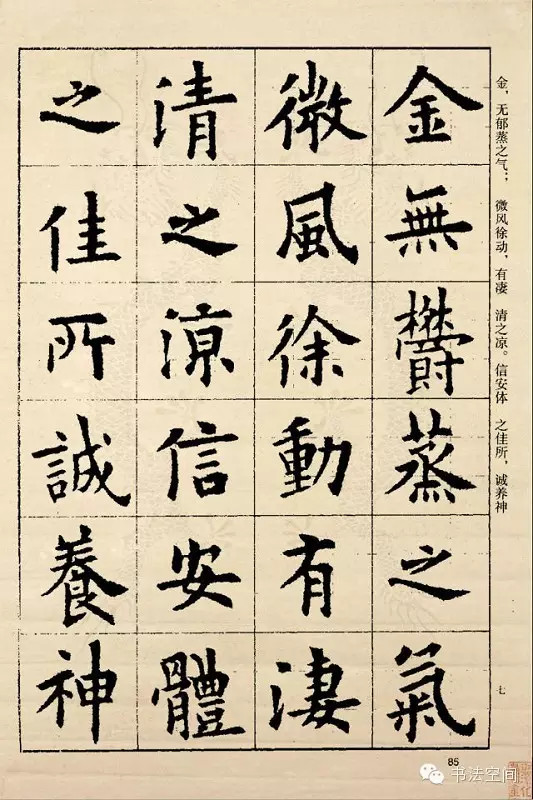 金無鬱蒸之氣
微風徐動有淒
清之涼信安體
之佳所誠養神
金，无郁蒸之气；微风徐动，有凄清之凉。信安体之佳所，诚养神
七
85
书法空间